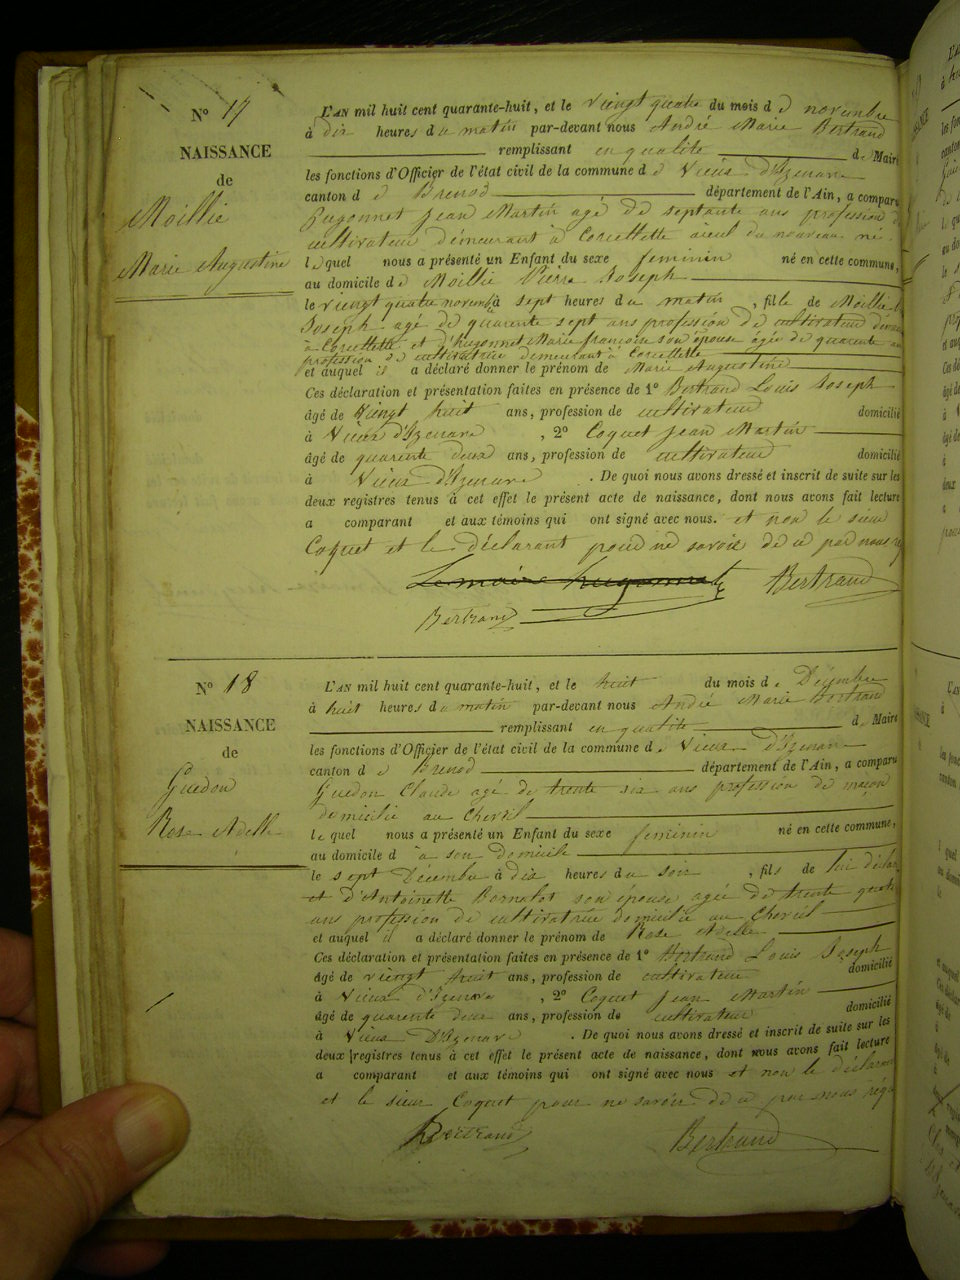 N° 17
NAISSANCE
de
Moillie
Marie Augustine
L'AN mil huit cent quarante-huit, et le vingt quatre du mois d e novembre
à dix heures du matin par-devant nous André Marie Bertrand
remplissant en qualité de Maire
les fonctions d'Officier de l'état civil de la commune d e Vieux d'Izenave
canton d e Brenod département de l'Ain, a comparu
hugonnet Jean Martin agé de septante ans profession de
cultivateur demeurant à Corcellette aieul du nouveau né
lequel nous a présenté un Enfant du sexe feminin né en cette commune,
au domicile de Moillie Pierre Joseph
le vingt quatre novembre à sept heures du matin, fille de Moillie
Joseph agé de quarente sept ans profession de cultivateur
à Corcellette et d'hugonnet Marie françoise son épouse agée de quarente ans
profession de cultivatrice demeurant à Corcellette
et auquel il a déclaré donner le prénom de Marie Augustine
Ces déclaration et présentation faites en présence de 1° Bertrand Louis Joseph
âgé de vingt huit ans, profession de cultivateur domicilié
à Vieux d'Izenave, 2° Coquet Jean Martin
âgé de quarente deux ans, profession de cultivateur domicilié
à Vieux d'Izenave. De quoi nous avons dressé et inscrit de suite sur les
deux registres tenus à cet effet le présent acte de naissance, dont nous avons fait lecture
a comparant et aux témoins qui ont signé avec nous. et non le sieur
Coquet et le déclarant pour ne savoir de ce par nous
Le maire hugonnet Bertrand
Bertrand
N° 18
NAISSANCE
de
Guedon
Rose Adelle
L'AN mil huit cent quarante-huit, et le huit du mois de Décembre
à huit heures du matin par-devant nous André Marie Bertrand
remplissant en qualité de Maire
les fonctions d'Officier de l'état civil de la commune de Vieux d'Izenave
canton d e Brenod département de l'Ain, a comparu
Guedon Claude agé de trente six ans profession de maçon
domicilié au Chevril
lequel nous a présenté un Enfant du sexe feminin né en cette commune,
au domicile d à son domicile
le sept Décembre à dix heures du soir, fils de lui
et d'Antoinette son épouse agée de trente quatre
ans profession de cultivatrice domiciliée au Chevril
et auquel il a déclaré donner le prénom de Rose Adelle
Ces déclaration et présentation faites en présence de 1° Bertrand Louis Joseph
âgé de vingt huit ans, profession de cultivateur domicilié
à Vieux d'Izenave, 2° Coquet Jean Martin
âgé de quarente deux ans, profession de cultivateur domicilié
à Vieux D'Izenave. De quoi nous avons dressé et inscrit de suite sur les
deux registres tenus à cet effet le présent acte de naissance, dont nous avons fait lecture
a comparant et aux témoins qui ont signé avec nous et non le déclarant
et le sieur Coquet pour ne savoir de ce par nous
Bertrand Bertrand